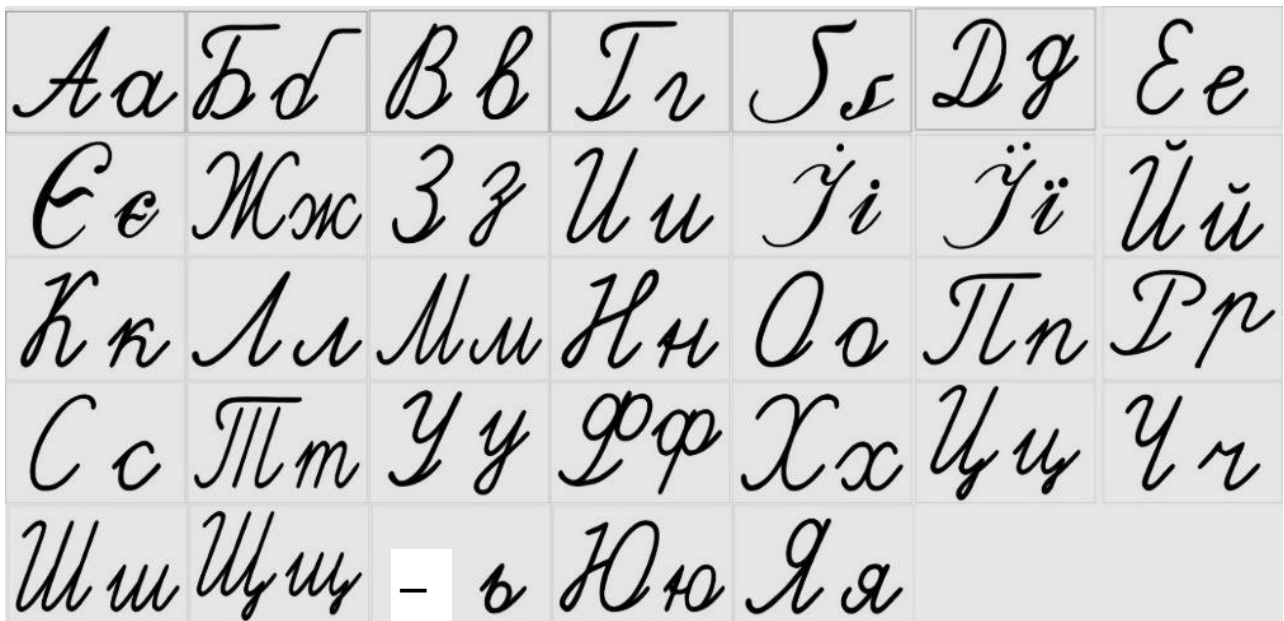 Аа Бб Вв Гг Ґґ Дд Ее
Єє Жж Зз Ии Іі Її Йй
Кк Лл Мм Нн Оо Пп Рр
Сс Тт Уу Фф Хх Цц Чч
Шш Щщ – ь Юю Яя